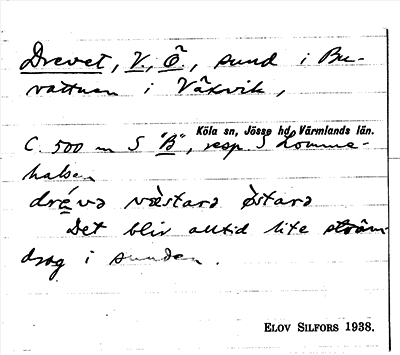 Drevet, V., Ö., sund i Bu-
vattnen i Växvik,
Köla sn, Jösse hd, Värmlands län.
C. 500 m S "B", resp. S Lomme-
halsen
dre̱və væ̀starə ø̀starə
Det blir alltid lite ström
drag i sunden.
ELOV SILFORS 1938.